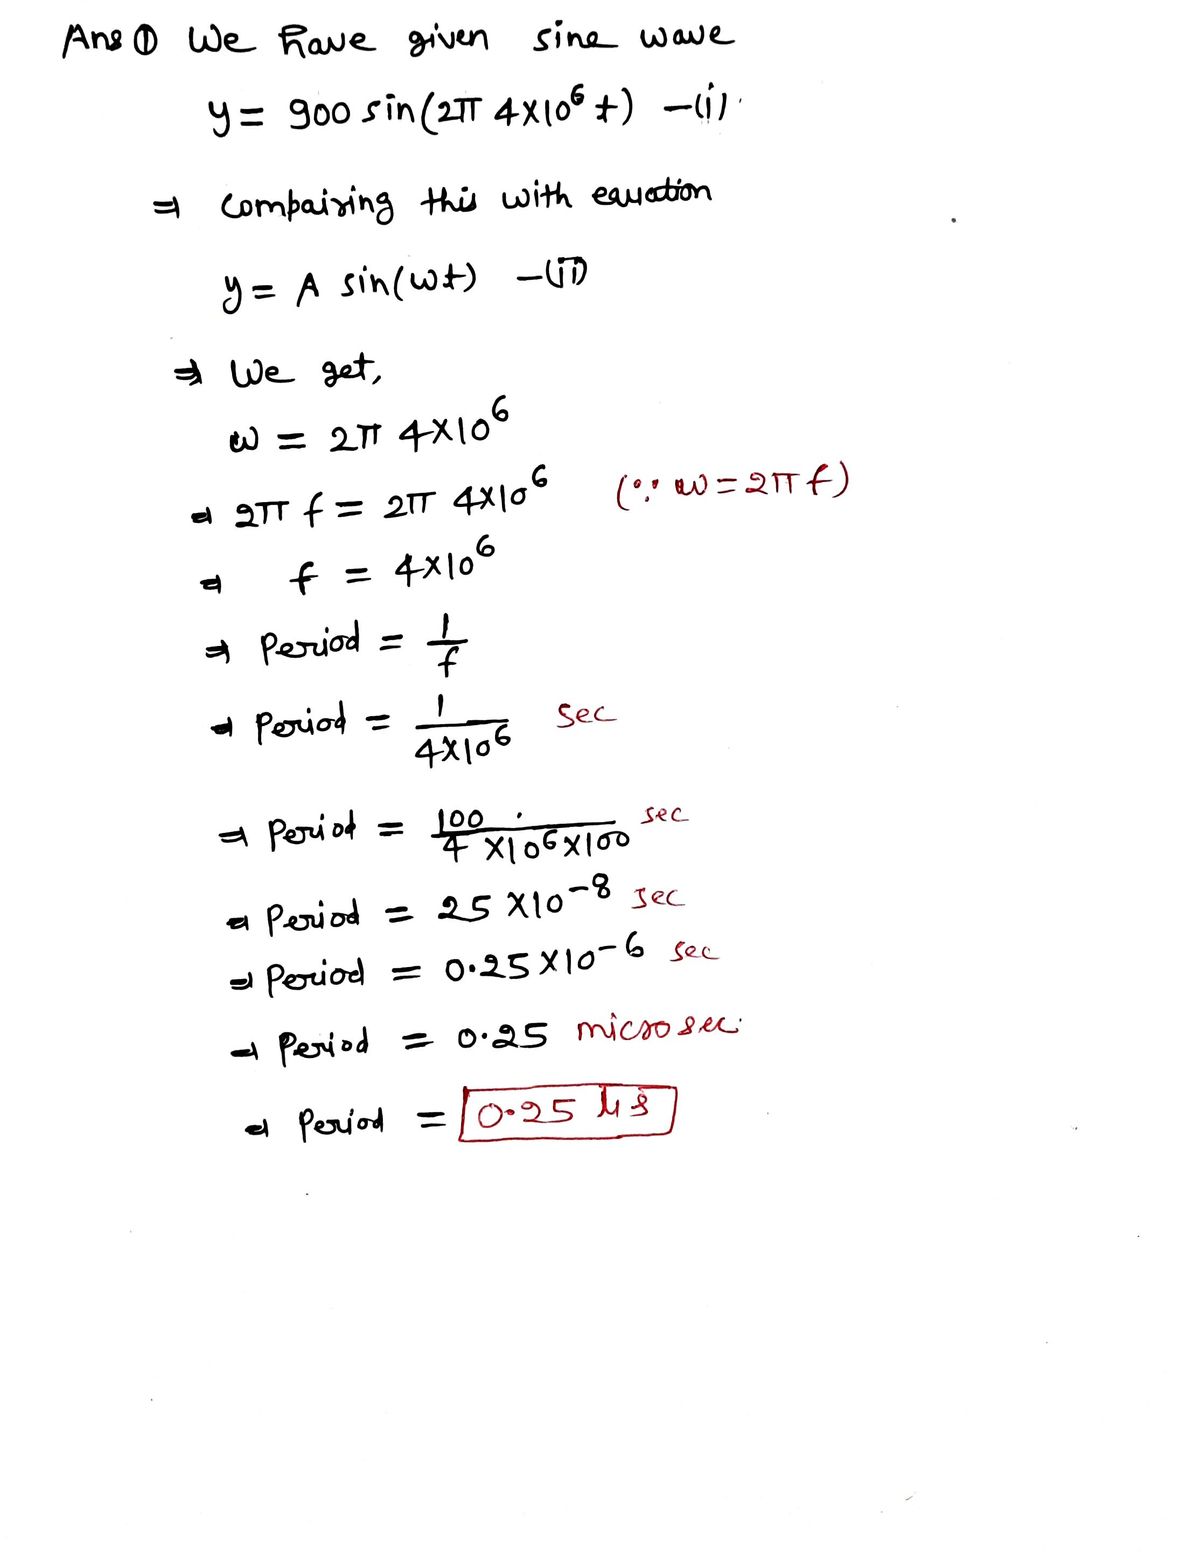 Ans ① We have given sine wave
y = 900 sin(2π 4×10⁶ t) —(i)
⇒ Compairing this with equation
y = A sin(ωt) —(ii)
⇒ We get,
ω = 2π 4×10⁶
⇒ 2π f = 2π 4×10⁶ (∵ ω = 2π f)
⇒ f = 4×10⁶
⇒ Period = 1/f
⇒ Period = 1/(4×10⁶) sec
⇒ Period = 100/(4 ×10⁶×100) sec
⇒ Period = 25 ×10⁻⁸ sec
⇒ Period = 0.25×10⁻⁶ sec
⇒ Period = 0.25 microsec.
⇒ Period = 0.25 μs